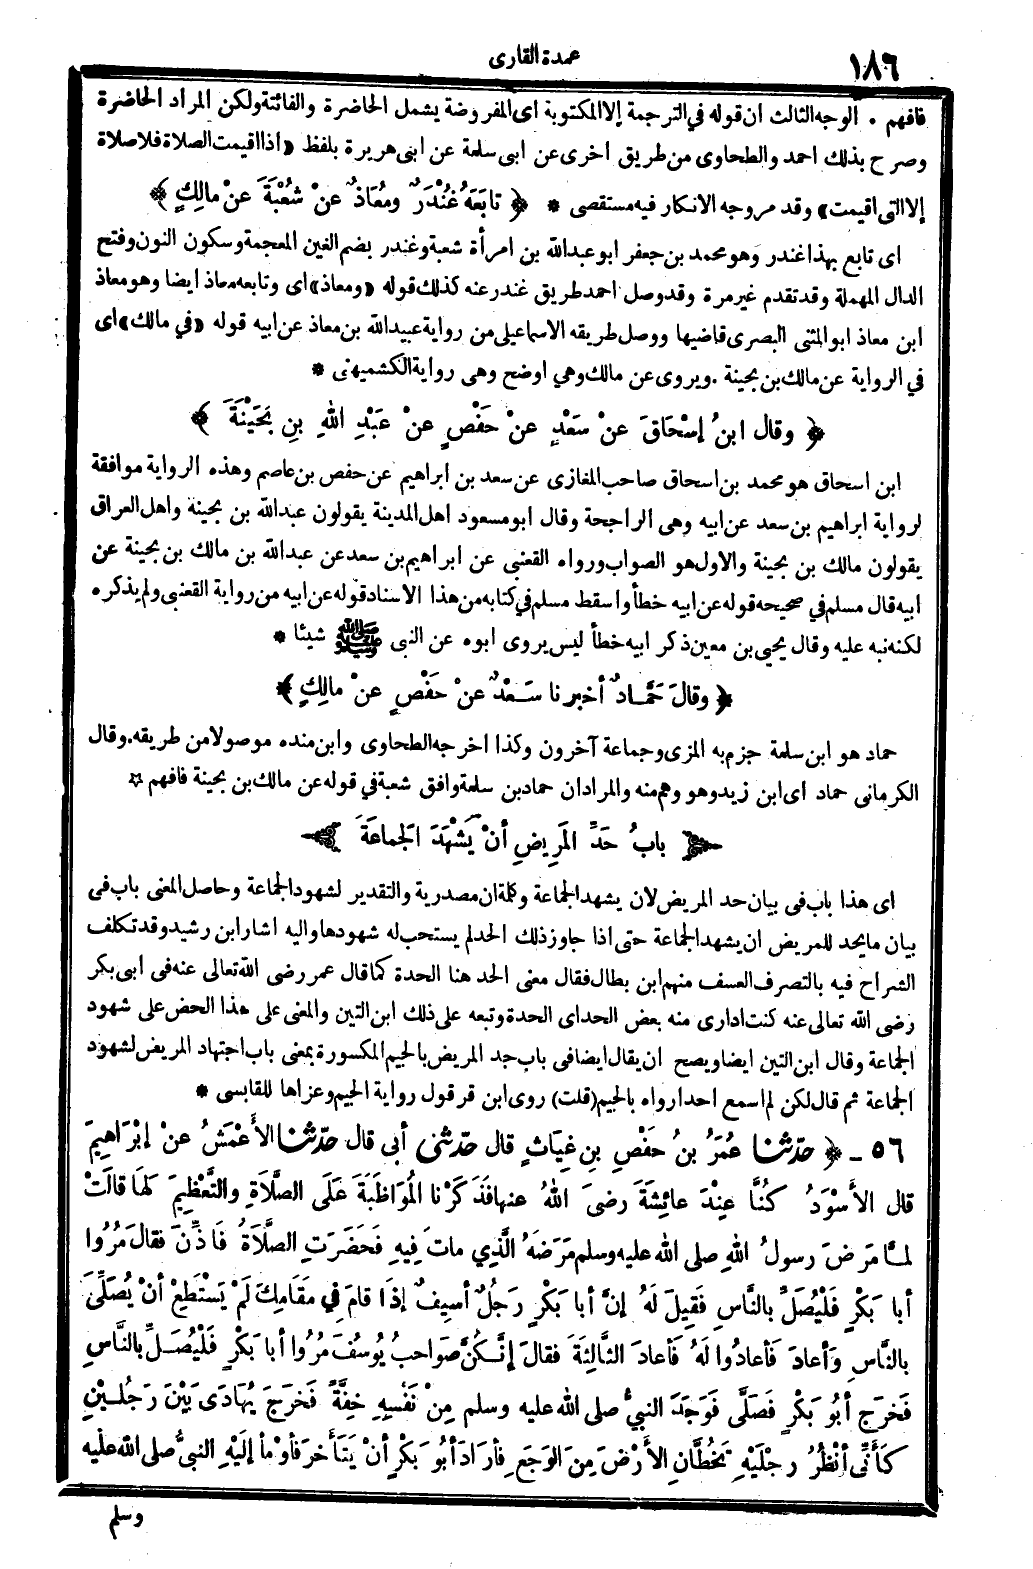 ١٨٦
عمدة القارى
فافهم . الوجه الثالث ان قوله في الترجمة إلا المكتوبة اى المفروضة يشمل الحاضرة والفائتة ولكن المراد الحاضرة
وصرح بذلك احمد والطحاوى من طريق اخرى عن ابى سلمة عن ابى هريرة بلفظ «اذا اقيمت الصلاة فلا صلاة
إلا التى اقيمت» وقد مر وجه الانكار فيه مستقصى * ﴿ تابَعَهُ غُنْدَرٌ ومُعَاذٌ عنْ شُعْبَةَ عنْ مالِكٍ ﴾
اى تابع بهذا غندر وهو محمد بن جعفر ابو عبدالله بن امرأة شعبة وغندر بضم الغين المعجمة وسكون النون وفتح
الدال المهملة وقد تقدم غير مرة وقد وصل احمد طريق غندر عنه كذلك قوله «ومعاذ» اى وتابعه معاذ ايضا وهو معاذ
ابن معاذ ابو المثنى البصرى قاضيها ووصل طريقه الاسماعيلى من رواية عبيدالله بن معاذ عن ابيه قوله «في مالك» اى
في الرواية عن مالك بن بحينة . ويروى عن مالك وهي اوضح وهى رواية الكشميهنى *
﴿ وقال ابنُ إسْحَاقَ عنْ سَعْدٍ عنْ حَفْصٍ عنْ عَبْدِ اللهِ بنِ بُحَيْنَةَ ﴾
ابن اسحاق هو محمد بن اسحاق صاحب المغازى عن سعد بن ابراهيم عن حفص بن عاصم وهذه الرواية موافقة
لرواية ابراهيم بن سعد عن ابيه وهى الراجحة وقال ابو مسعود اهل المدينة يقولون عبدالله بن بحينة واهل العراق
يقولون مالك بن بحينة والاول هو الصواب ورواه القعنبى عن ابراهيم بن سعد عن عبدالله بن مالك بن بحينة عن
ابيه قال مسلم في صحيحه قوله عن ابيه خطأ واسقط مسلم في كتابه من هذا الاسناد قوله عن ابيه من رواية القعنبى ولم يذكره
لكنه نبه عليه وقال يحيى بن معين ذكر ابيه خطأ ليس يروى ابوه عن النبى ﷺ شيئا *
﴿ وقالَ حَمَّادٌ أخبرنا سَعْدٌ عنْ حَفْصٍ عنْ مالِكٍ ﴾
حماد هو ابن سلمة جزم به المزى وجماعة آخرون وكذا اخرجه الطحاوى وابن منده موصولا من طريقه. وقال
الكرمانى حماد اى ابن زيد وهو وهم منه والمراد ان حماد بن سلمة وافق شعبة في قوله عن مالك بن بحينة فافهم ☆
بابُ حَدِّ المَرِيضِ أنْ يَشْهَدَ الجماعَةَ
اى هذا باب فى بيان حد المريض لان يشهد الجماعة وكلمة ان مصدرية والتقدير لشهود الجماعة وحاصل المعنى باب فى
بيان ما يحد للمريض ان يشهد الجماعة حتى اذا جاوز ذلك الحد لم يستحب له شهودها واليه اشار ابن رشيد وقد تكلف
الشراح فيه بالتصرف العسف منهم ابن بطال فقال معنى الحد هنا الحدة كما قال عمر رضى الله تعالى عنه فى ابى بكر
رضى الله تعالى عنه كنت ادارى منه بعض الحد اى الحدة وتبعه على ذلك ابن التين والمعنى على هذا الحض على شهود
الجماعة وقال ابن التين ايضا ويصح ان يقال ايضا فى باب جد المريض بالجيم المكسورة بمعنى باب اجتهاد المريض لشهود
الجماعة ثم قال لكن لم اسمع احدا رواه بالجيم (قلت) روى ابن قرقول رواية الجيم وعزاها للقابسى *
٥٦ - ﴿ حدّثنا عُمَرُ بنُ حَفْصِ بنِ غِيَاثٍ قال حدّثنى أبي قال حدّثنا الأَعْمَشُ عنْ إبْرَاهِيمَ
قال الأَسْوَدُ كُنَّا عِنْدَ عائِشَةَ رضىَ اللهُ عنها فَذَكَرْنا المُوَاظَبَةَ عَلَى الصَّلاَةِ والتَّعْظِيمَ لهَا قالَتْ
لمَّا مَرِضَ رسولُ اللهِ صلى الله عليه وسلم مَرَضَهُ الَّذِي ماتَ فِيهِ فَحَضَرَتِ الصَّلاَةُ فَأُذِّنَ فقالَ مُرُوا
أبا بَكْرٍ فَلْيُصَلِّ بالنَّاسِ فَقِيلَ لَهُ إنَّ أبا بَكْرٍ رَجُلٌ أسِيفٌ إذَا قامَ في مَقَامِكَ لَمْ يَسْتَطِعْ أنْ يُصَلِّىَ
بالنَّاسِ وَأَعادَ فَأعادُوا لَهُ فَأعادَ الثَّالِثَةَ فقالَ إنَّكُنَّ صَوَاحِبُ يُوسُفَ مُرُوا أبا بَكْرٍ فَلْيُصَلِّ بالنَّاسِ
فَخَرَجَ أبُو بَكْرٍ فَصَلَّى فَوَجَدَ النبيُّ صلى الله عليه وسلم مِنْ نَفْسِهِ خِفَّةً فَخَرَجَ يُهَادَى بَيْنَ رَجُلَيْنِ
كَأَنِّى أنْظُرُ رِجْلَيْهِ تَخُطَّانِ الأرْضَ مِنَ الوَجَعِ فأرَادَ أبُو بَكْرٍ أنْ يَتَأَخَّرَ فأوْمأَ إلَيْهِ النبيُّ صلى الله علَيه
وسلم